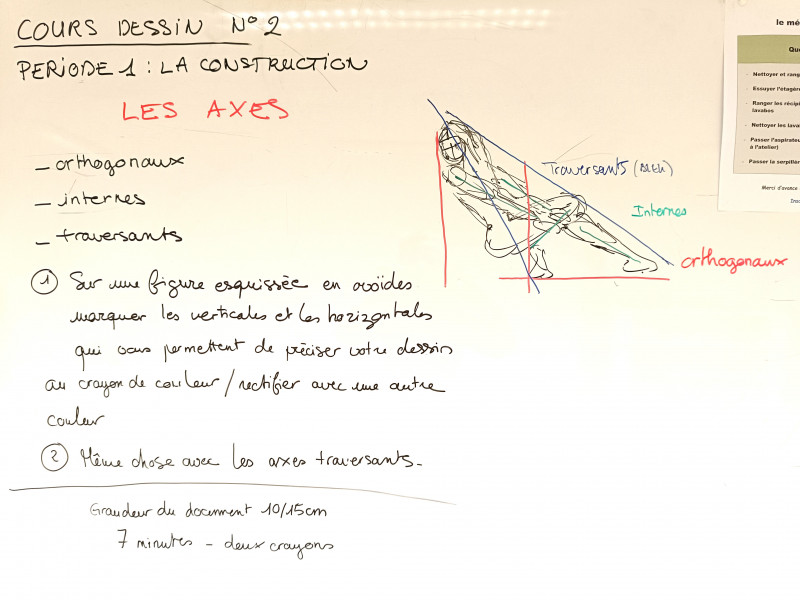 COURS DESSIN N° 2
PERIODE 1 : LA CONSTRUCTION
LES AXES
– orthogonaux
– internes
– traversants
1 Sur une figure esquissée en ovoïdes
marquer les verticales et les horizontales
qui vous permettent de préciser votre dessin
au crayon de couleur / rectifier avec une autre
couleur
2 Même chose avec les axes traversants –
Grandeur du document 10/15cm
7 minutes – deux crayons
Traversants (bleu)
Internes
orthogonaux
le mé
Que
Nettoyer et rang
Essuyer l'étagère
Ranger les récipi
lavabos
Nettoyer les lava
Passer l'aspirateu
à l'atelier)
Passer la serpillèr
Merci d'avance